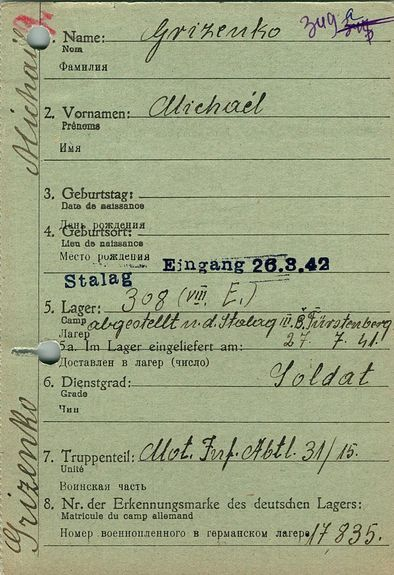 1. Name: Grizenko
Nom
Фамилия
2. Vornamen: Michaël
Prénoms
Имя
3. Geburtstag:
Date de naissance
День рождения
4. Geburtsort:
Lieu de naissance
Место рождения
Eingang 26.3.42
Stalag
5. Lager: 308 (VIII. E.)
Camp
Лагерь
abgestellt n. d. Stalag III. B. Fürstenberg
5a. Im Lager eingeliefert am: 27. 7. 41.
Доставлен в лагерь (число)
6. Dienstgrad: Soldat
Grade
Чин
7. Truppenteil: Mot. Inf. Abtl. 31/15.
Unité
Воинская часть
8. Nr. der Erkennungsmarke des deutschen Lagers:
Matricule du camp allemand
Номер военнопленного в германском лагере 17835.
Grizenko
Michaël